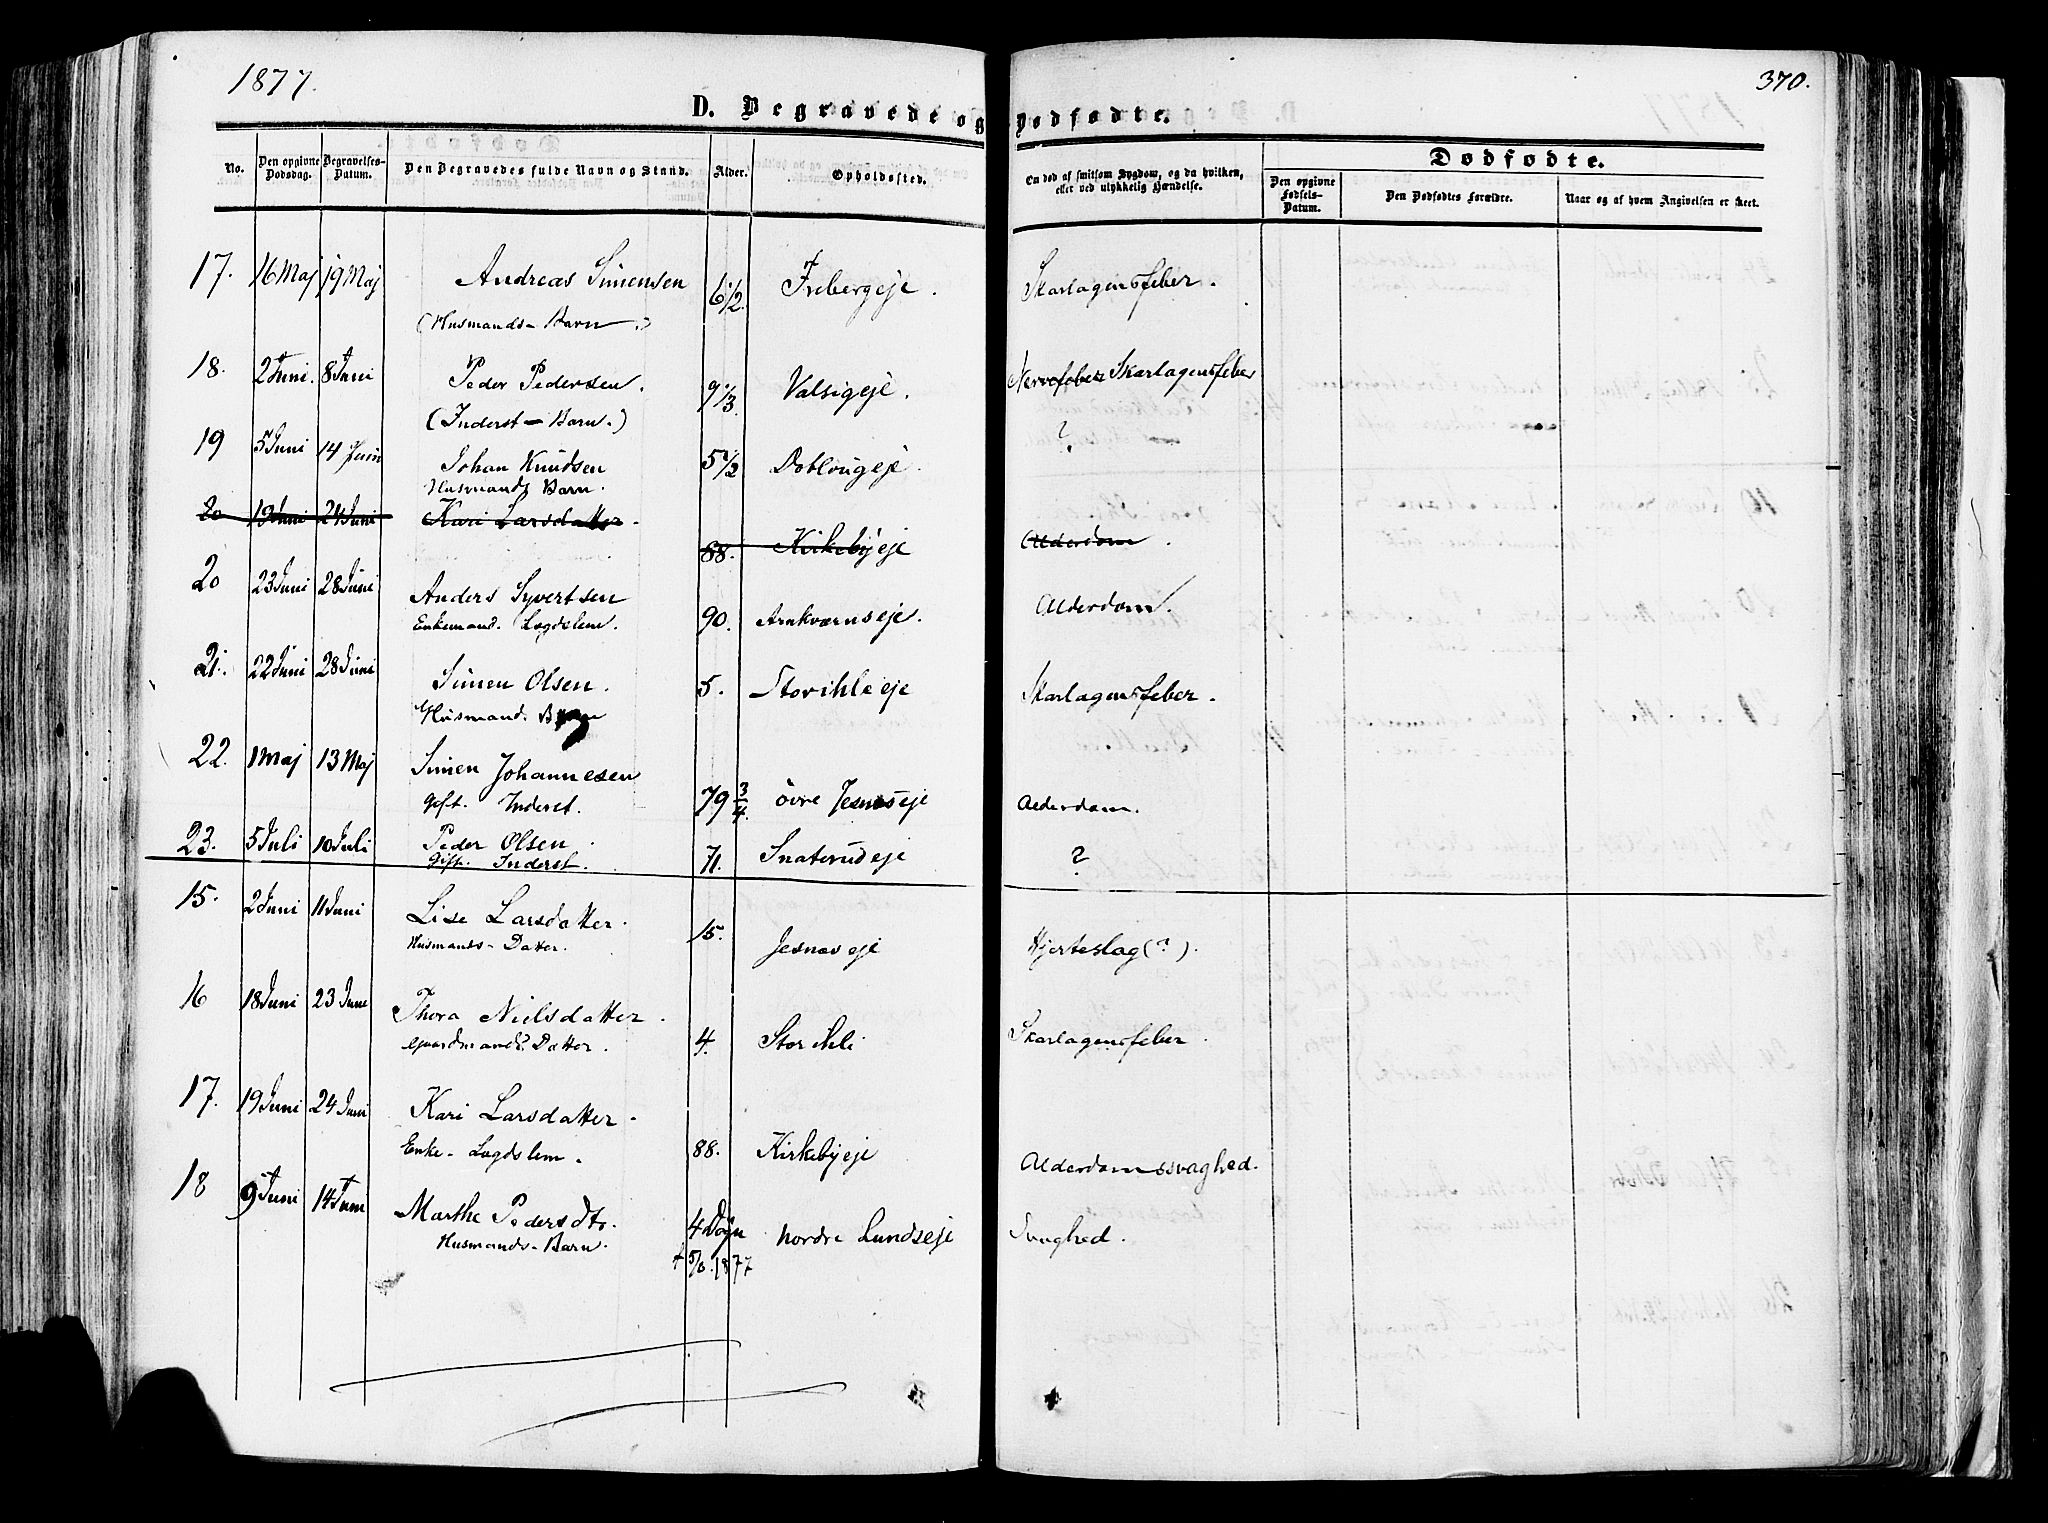 1877.
370.
D. Begravede og Dødfødte.
No.
Den opgivne Dødsdag.
Begravelses-Datum.
Den Begravedes fulde Navn og Stand.
Alder.
Opholdssted.
Om død af smitsom Sygdom, og da hvilken, eller ved ulykkelig Hændelse.
Dødfødte.
Den opgivne Fødsels-Datum.
Den Dødfødtes Forældre.
Naar og af hvem Angivelsen er skeet.
17. 16 Maj 19 Maj Andreas Simensen 6 1/2 Frebergeje. Skarlagensfeber.
(Husmands-Barn.)
18. 2 Juni. 8 Juni Peder Pedersen. 9 1/3. Valsigeje. Nervefeber Skarlagensfeber
(Inderst-Barn.)
19 5 Juni 14 Juni Johan Knudsen 5 1/2 Doblougeje. ?
Husmands Barn.
20 19 Juni 24 Juni Kari Larsdatter. 88. Kirkebyeje Alderdom.
20 23 Juni 28 Juni Anders Syvertsen 90. Arnkværnseje. Alderdom.
Enkemand. Lægdslem.
21. 22 Juni 28 Juni Simen Olsen. 5. Storihleeje Skarlagensfeber.
Husmands Barn
22. 1 Maj 13 Maj Simen Johannesen 79 3/4. øvre Jesnæseje Alderdom.
Gift. Inderst.
23. 5 Juli 10 Juli Peder Olsen. 71. Snaterudeje ?
Gift. Inderst.
15. 2 Juni 11 Juni Lise Larsdatter. 15. Jesnæseje Hjerteslag (?).
Husmands-Datter.
16 18 Juni 23 Juni Thora Nielsdatter. 4. Storihle Skarlagensfeber.
Gaardmands Datter.
17. 19 Juni 24 Juni Kari Larsdatter. 88. Kirkebyeje Alderdomssvaghed.
Enke-Lægdslem.
18 9 Juni 14 Juni Marthe Pedersdtr. 4 Døgn nordre Lundseje Svaghed.
Husmands-Barn. 5/6. 1877